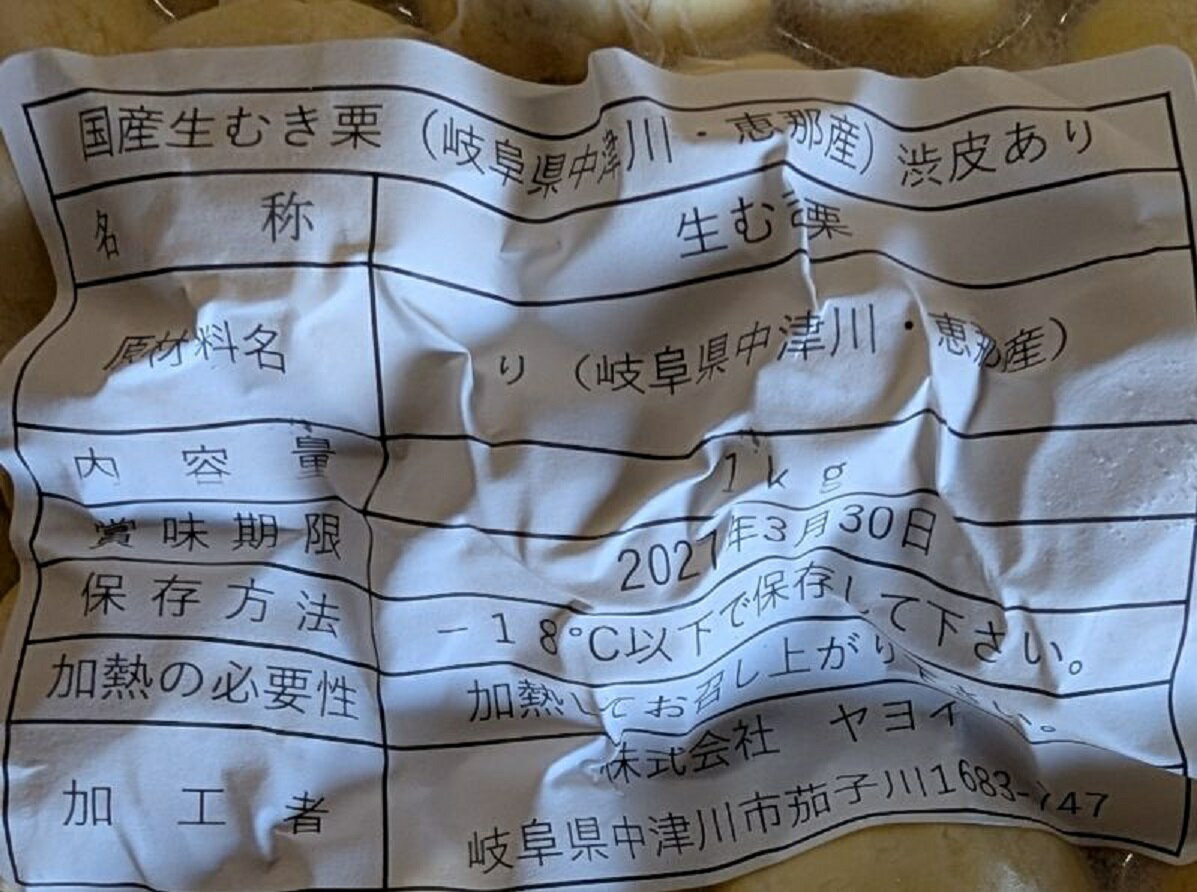 国産生むき栗（岐阜県中津川・恵那産）渋皮あり
名称 生むき栗
原材料名 り（岐阜県中津川・恵那産）
内容量 1kg
賞味期限 2021年3月30日
保存方法 －18℃以下で保存して下さい。
加熱の必要性 加熱してお召し上がり下さい。
加工者 株式会社 ヤヨイ
岐阜県中津川市茄子川1683-